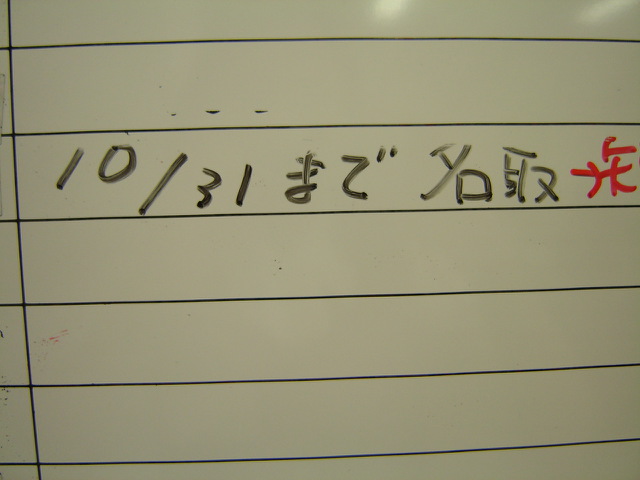 10/31まで 名取